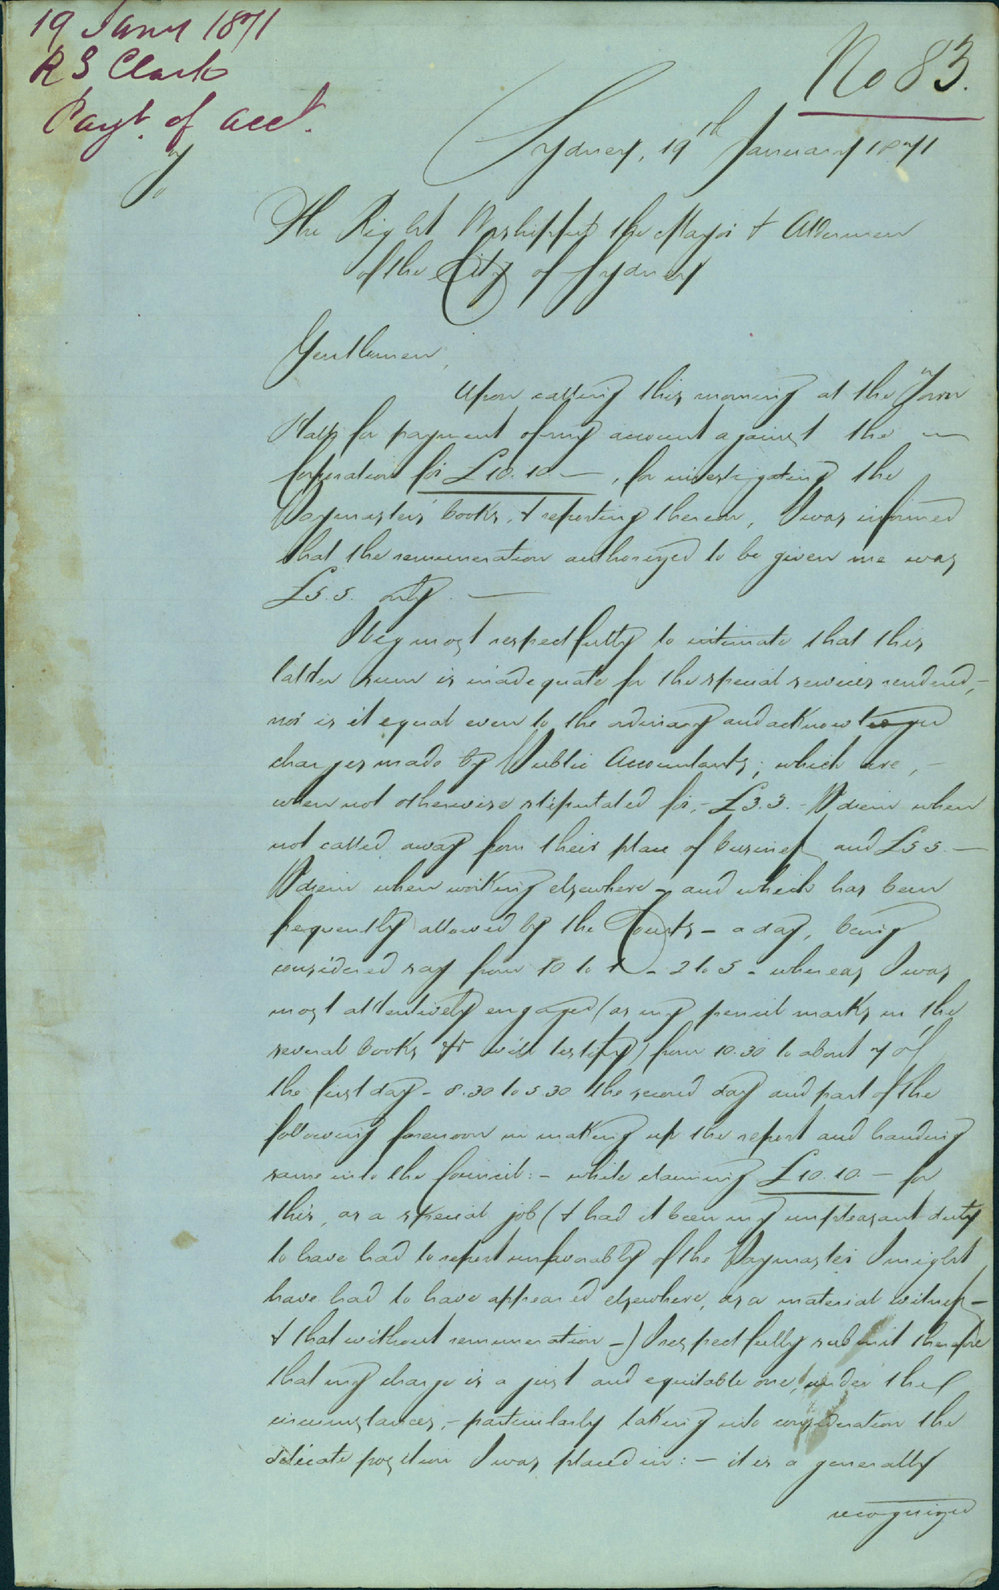 19 Jany 1871
R S Clark
Payt. of acct.
No 83.
Sydney, 19th January 1871
The Right Worshipful the Mayor & Aldermen
of the City of Sydney
Gentlemen,
Upon calling this morning at the Town
Hall for payment of my account against the —
Corporation for £10.10 —, for investigating the
Paymasters' books, & reporting thereon, I was informed
that the remuneration authorized to be given me was
£5.5. only. —
I beg most respectfully to intimate that this
latter sum is inadequate for the special services rendered, —
nor is it equal even to the ordinary and
charges made by Public Accountants; which are, —
when not otherwise stipulated for, - £3.3. - P diem when
not called away from their place of business and £5 5. —
P diem when working elsewhere - and which has been
frequently allowed by the Courts - a day, being
considered say from 10 to 1 - 2 to 5 - whereas I was
most attentively engaged (as my pencil marks in the
several books &c will testify) from 10.30 to about 7 of
the first day - 8.30 to 5 30 the second day and part of the
following forenoon in making up the report and handing
same into the Council: - while claiming £10.10. — for
this, as a special job (& had it been my unpleasant duty
to have had to report unfavorably of the Paymaster I might
have had to have appeared elsewhere, as a material witness —
& that without remuneration -) I respectfully submit therefore
that my charge is a just and equitable one, under the
circumstances, - particularly taking into consideration the
delicate position I was placed in: - it is a generally
recognized